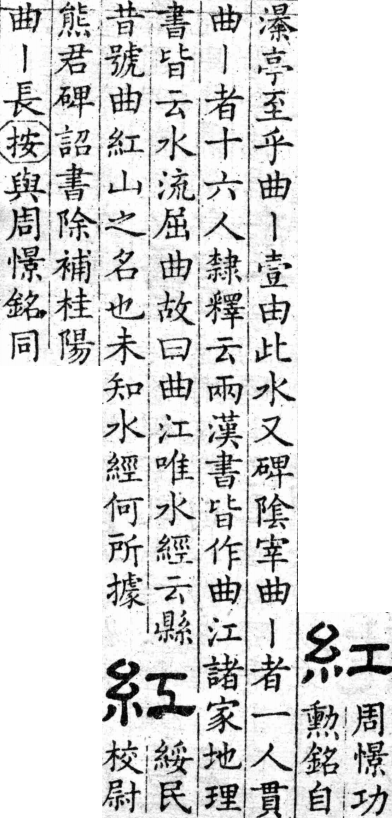 紅
周憬功
勲銘自
瀑亭至乎曲丨壹由此水又碑陰宰曲丨者一人貫
曲丨者十六人隸釋云兩漢書皆作曲江諸家地理
書皆云水流屈曲故曰曲江唯水經云縣
昔號曲紅山之名也未知水經何所據
紅
綏民
校尉
熊君碑詔書除補桂陽
曲丨長按與周憬銘同